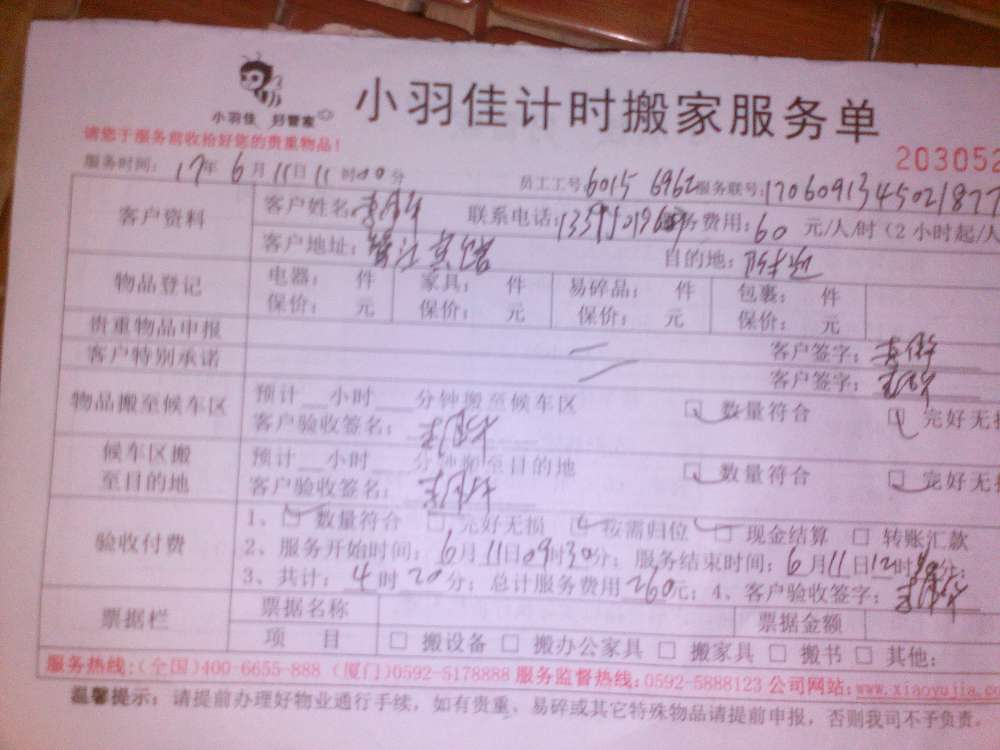 小羽佳 好管家
小羽佳计时搬家服务单
请您于服务前收拾好您的贵重物品!
203052
服务时间: 17年 6月 11日 11时00分 员工工号 6015 6962 服务联号: 1706091345021877
客户资料 客户姓名: 联系电话: 服务费用: 60 元/人/时 (2小时起/人
客户地址: 宾馆 目的地:
物品登记 电器: 件 家具: 件 易碎品: 件 包裹: 件
保价: 元 保价: 元 保价: 元 保价: 元
贵重物品申报 客户签字:
客户特别承诺 客户签字:
物品搬至候车区 预计__小时__分钟搬至候车区 数量符合 完好无损
客户验收签名:
候车区搬至目的地 预计__小时__分钟搬至目的地 数量符合 完好无损
客户验收签名:
验收付费 1、 数量符合 完好无损 按需归位 现金结算 转账汇款
2、服务开始时间: 6月11日09时30分; 服务结束时间: 6月11日12时分;
3、共计: 4时20分; 总计服务费用260元; 4、客户验收签字:
票据栏 票据名称 票据金额
项 目 □ 搬设备 □ 搬办公家具 □ 搬家具 □ 搬书 □ 其他:
服务热线:(全国)400-6655-888 (厦门)0592-5178888 服务监督热线:0592-5888123 公司网站:www.xiaoyujia.co
温馨提示: 请提前办理好物业通行手续, 如有贵重、易碎或其它特殊物品请提前申报, 否则我司不予负责。